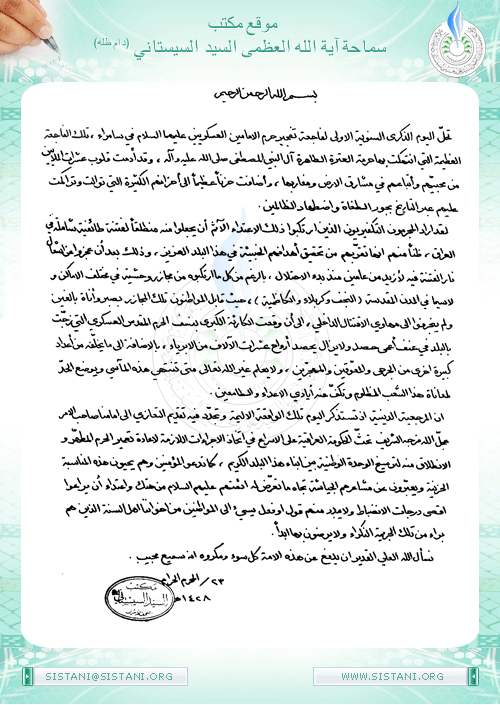 موقع مكتب
سماحة آية الله العظمى السيد السيستاني (دام ظله)
بسم الله الرحمن الرحيم
تمرّ اليوم الذكرى السنوية الاولى لفاجعة تفجير حرم الامامين العسكريين عليهما السلام في سامراء ، تلك الفاجعة
العظيمة التي انتهكت بها حرمة العترة الطاهرة آل النبي المصطفى صلى الله عليه وآله ، وقد أدمت قلوب عشرات الملايين
من محبيهم وأتباعهم في مشارق الارض ومغاربها ، وأضافت حزناً عظيماً الى أحزانهم الكثيرة التي توالت وتراكمت
عليهم عبر التاريخ بجور الطغاة واضطهاد الظالمين .
لقد اراد المجرمون التكفيريون الذين ارتكبوا ذلك الاعتداء الآثم أن يجعلوا منه منطلقاً لفتنة طائفية شاملة في
العراق ، ظناً منهم انها تقرّبهم من تحقيق أهدافهم الخبيثة في هذا البلد العزيز ، وذلك بعد أن عجزوا عن اشعال
نار الفتنة فيه لأزيد من عامين منذ بدء الاحتلال ، بالرغم من كل ما ارتكبوه من مجازر وحشية في مختلف الاماكن و
لاسيما في المدن المقدسة ( النجف وكربلاء والكاظمية ) ، حيث قابل المواطنون تلك المجازر بصبر وأناة بالغين
ولم ينجرفوا الى مهاوي الاقتتال الداخلي ، الى أن وقعت الكارثة الكبرى بنسف الحرم المقدس العسكري التي زجّت
بالبلد في عنف أعمى حصد ولا يزال يحصد أرواح عشرات الآلاف من الابرياء ، بالاضافة الى ما يخلّفه من أعداد
كبيرة اخرى من الجرحى والمعوّقين والمهجّرين ، ولا يعلم غير الله تعالى متى تنتهي هذه المآسي ويوضع الحدّ
لمعاناة هذا الشعب المظلوم وتكفّ عنه أيادي الاعداء والطامعين .
ان المرجعية الدينية اذ تستذكر اليوم تلك الواقعة الاليمة وتجدّد فيه تقديم التعازي الى امامنا صاحب الامر
عجّل الله فرجه الشريف تحثّ الحكومة العراقية على الاسراع في اتخاذ الاجراءات اللازمة لاعادة تعمير الحرم المطهّر و
الانطلاق منه لترسيخ الوحدة الوطنية بين ابناء هذا البلد الكريم ، كما تدعو المؤمنين وهم يحيون هذه المناسبة
الحزينة ويعبّرون عن مشاعرهم الجياشة تجاه ما تعرّض له ائمتهم عليهم السلام من هتك واعتداء أن يراعوا
اقصى درجات الانضباط ولا يبدر منهم قول او فعل يسيء الى المواطنين من اخواننا اهل السنة الذين هم
براء من تلك الجريمة النكراء ولا يرضون بها ابداً .
نسأل الله العلي القدير ان يدفع عن هذه الامة كل سوء ومكروه انه سميع مجيب .
٢٣ / محرم الحرام
١٤٢٨ هـ
مكتب
السيد السيستاني
SISTANI@SISTANI.ORG
WWW.SISTANI.ORG